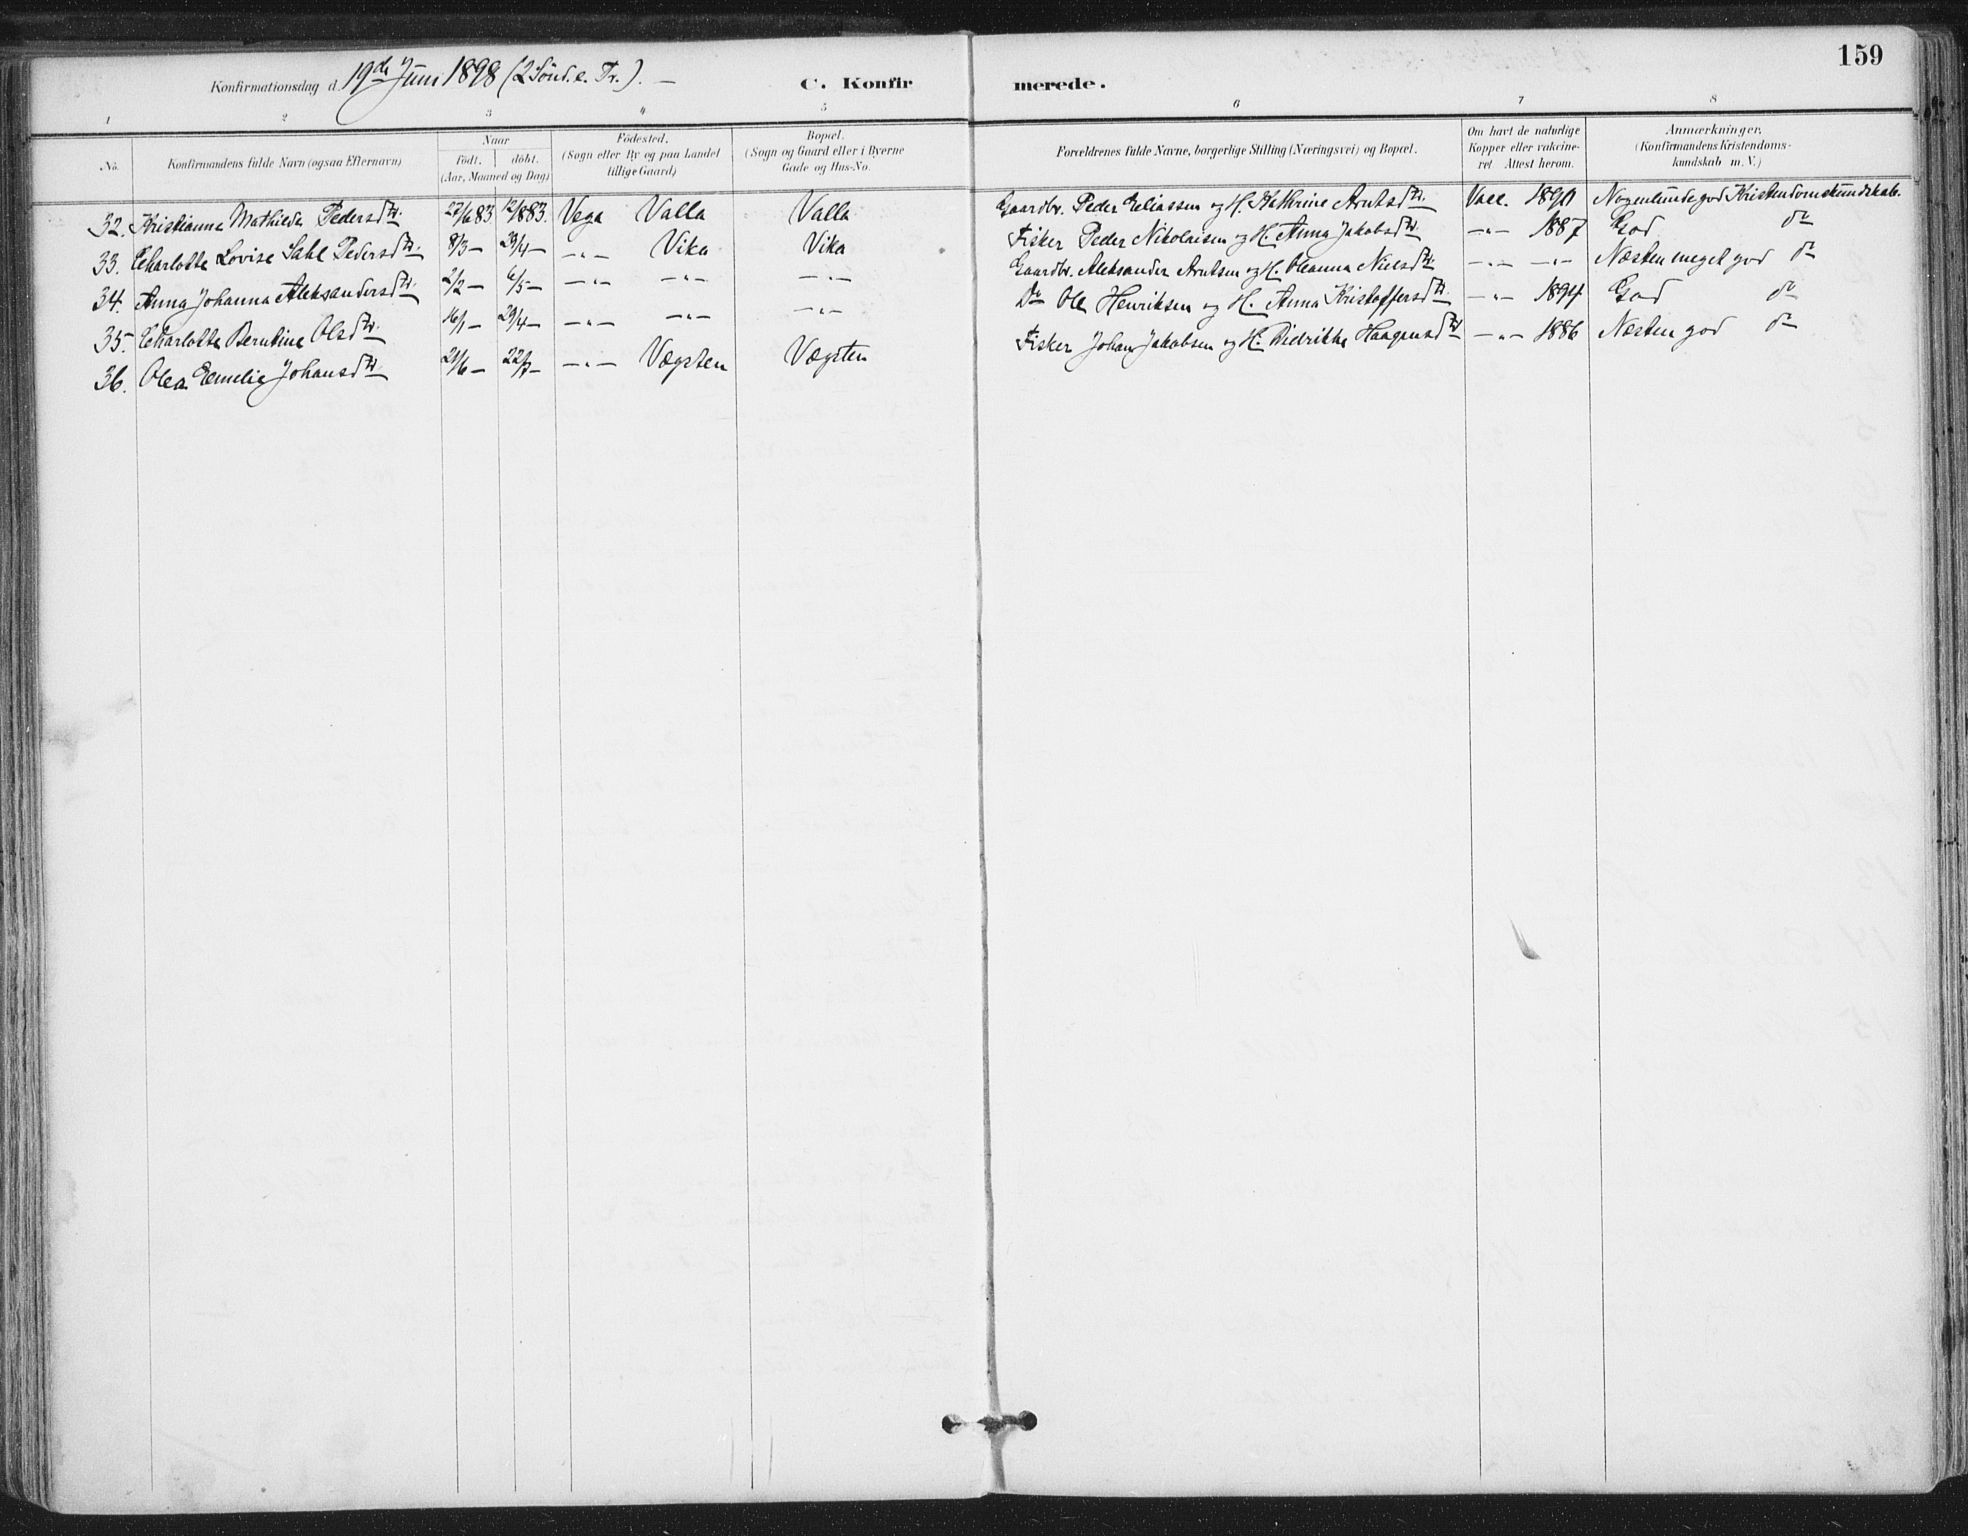 159
Konfirmationsdag d. 19de Juni 1898 (2 Sønd. e. Tr.). —
C. Konfirmerede.
1 2 3 4 5 6 7 8
No. Konfirmandens fulde Navn (ogsaa Efternavn) Naar født. døbt. (Aar, Maaned og Dag) Fødested. (Sogn eller By og paa Landet tillige Gaard) Bopæl. (Sogn og Gaard eller i Byerne Gade og Hus-No. Forældrenes fulde Navne, borgerlige Stilling (Næringsvei) og Bopæl. Om havt de naturlige Kopper eller vakcineret. Attest herom. Anmærkninger. (Konfirmandens Kristendomskundskab m. V.)
32. Kristianna Mathilde Pedersdtr. 27/6 83 12/8 83. Vega Valla Valla Gaardbr. Peder Eeliassen og H. Kathrine Arntsdtr. Vacc. 1890 Nogenlunde god Kristendomskundskab.
33. Charlotte Lovise Sahl Pedersdtr. 8/3 — 29/4 — — „ — Vika Vika Fisker Peder Nikolaisen og H. Anna Jakobsdtr. — „ — 1887 God do
34. Anna Johanna Aleksandersdtr. 2/2 — 6/5 — — „ — — „ — — „ — Gaardbr. Aleksander Arntsen og H. Oleanna Nielsdtr — „ — — „ — Næsten meget god do
35. Charlotte Berntine Olsdtr. 16/1 — 29/4 — — „ — — „ — — „ — Do Ole Henriksen og H. Anna Kristoffersdtr. — „ — 1894 God do
36. Olea Emelie Johansdtr. 21/6 — 22/7 — — „ — Vægsten Vægsten Fisker Johan Jakobsen og H. Didrikke Haagensdtr — „ — 1886 Næsten god do